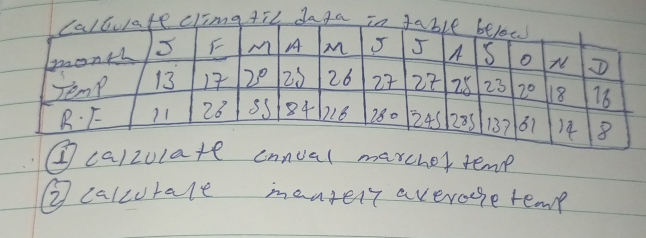 calculate climatic data in table below
month J F M A M J J A S O N D
Temp 13 17 20 25 26 27 27 25 23 20 18 16
R.F 11 26 35 84 116 280 245 235 137 61 17 8
① calculate annual march of temp
② calculate temp